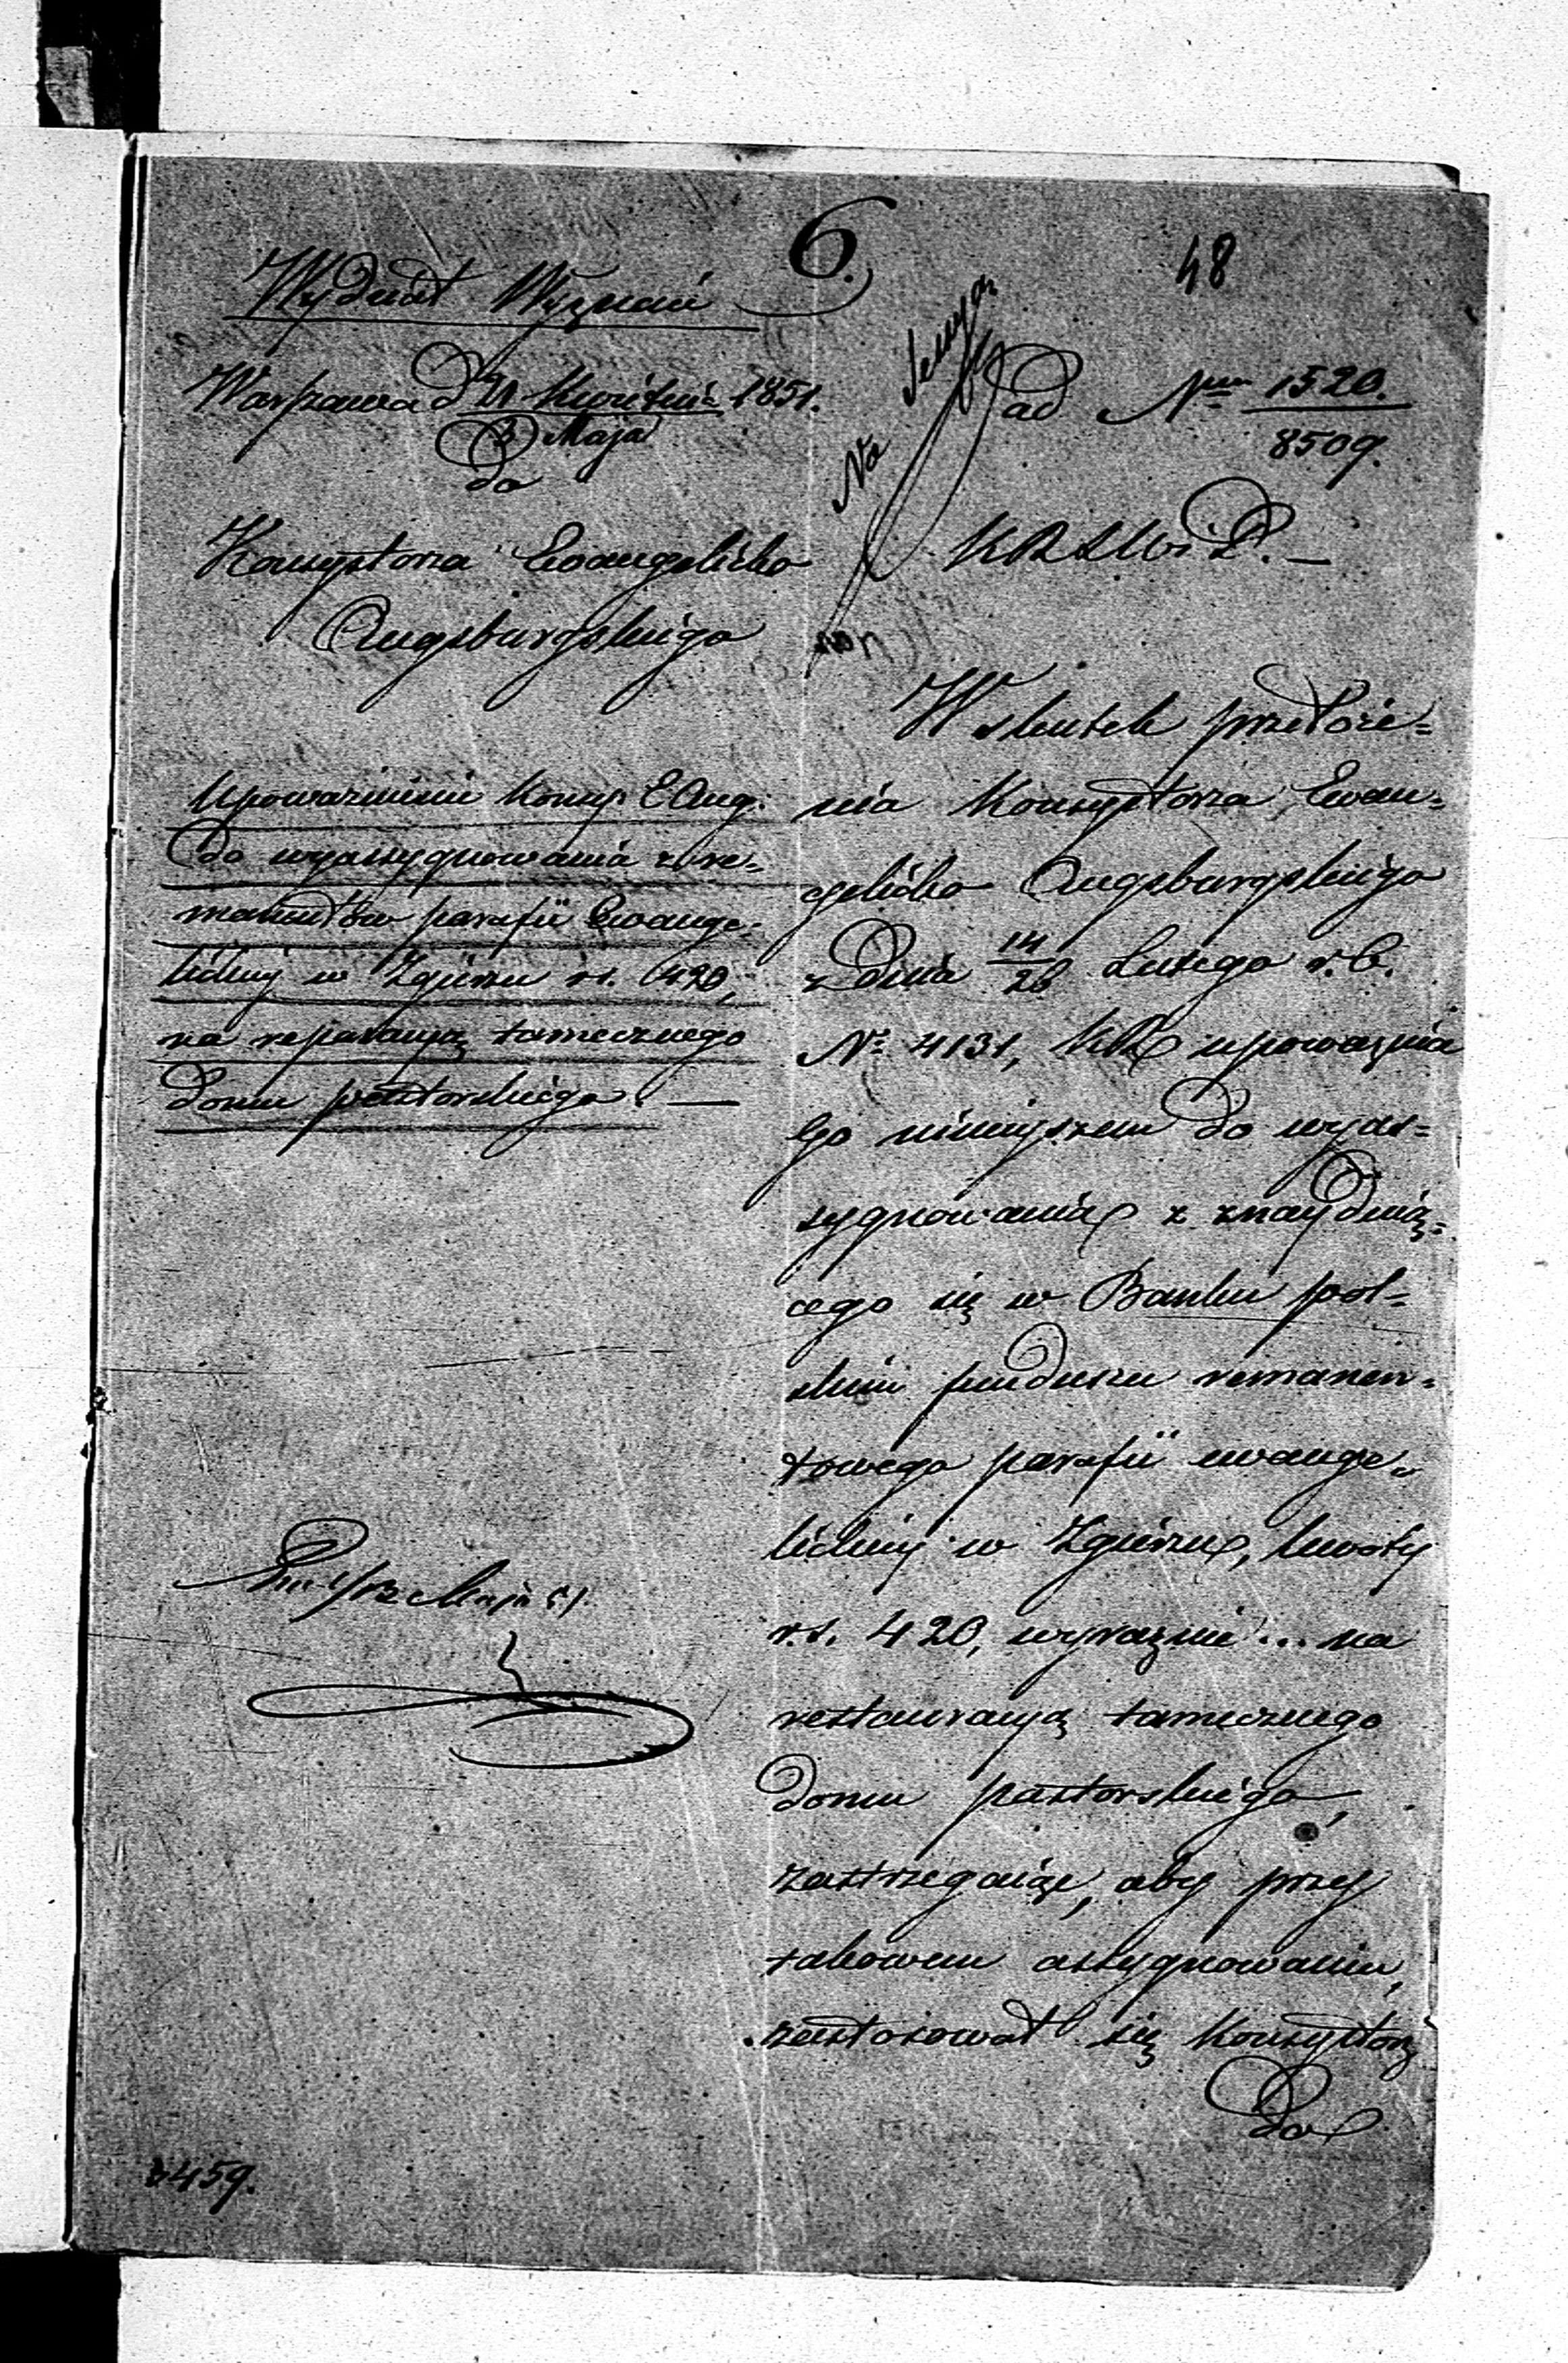 6.
48
Wydział Wyznań
Warszawa d 21 Kwietnia 1851.
3 Maja
do
Konsystorza Ewangelicko
Augsburgskiego
Upoważnienie Konsys: E Aug:
do wyassygnowania z re=
manentów parafii Ewange=
lickiej w Zgierzu rs. 420,
na reparacyą tamecznego
domu pastorskiego. —
Maja 51
2459.
Na
ad Num 1520.
8509.
KRSWiD. —
W skutek przełoże=
nia Konsystorza Ewan=
gelicko Augsburgskiego
z dnia 14/26 Lutego r. b.
No 4131, KR upoważnia
go niniejszem do wyas=
sygnowania z znayduią=
cego się w Banku pol=
skim funduszu remanen=
towego parafii ewange=
lickiej w Zgierzu, kwoty
r.s. 420, wyraźnie ... na
restauracyą tamecznego
domu pastorskiego,
zastrzegaiąc, aby przy
takowem assygnowaniu,
zastosował się Konsystorz
do